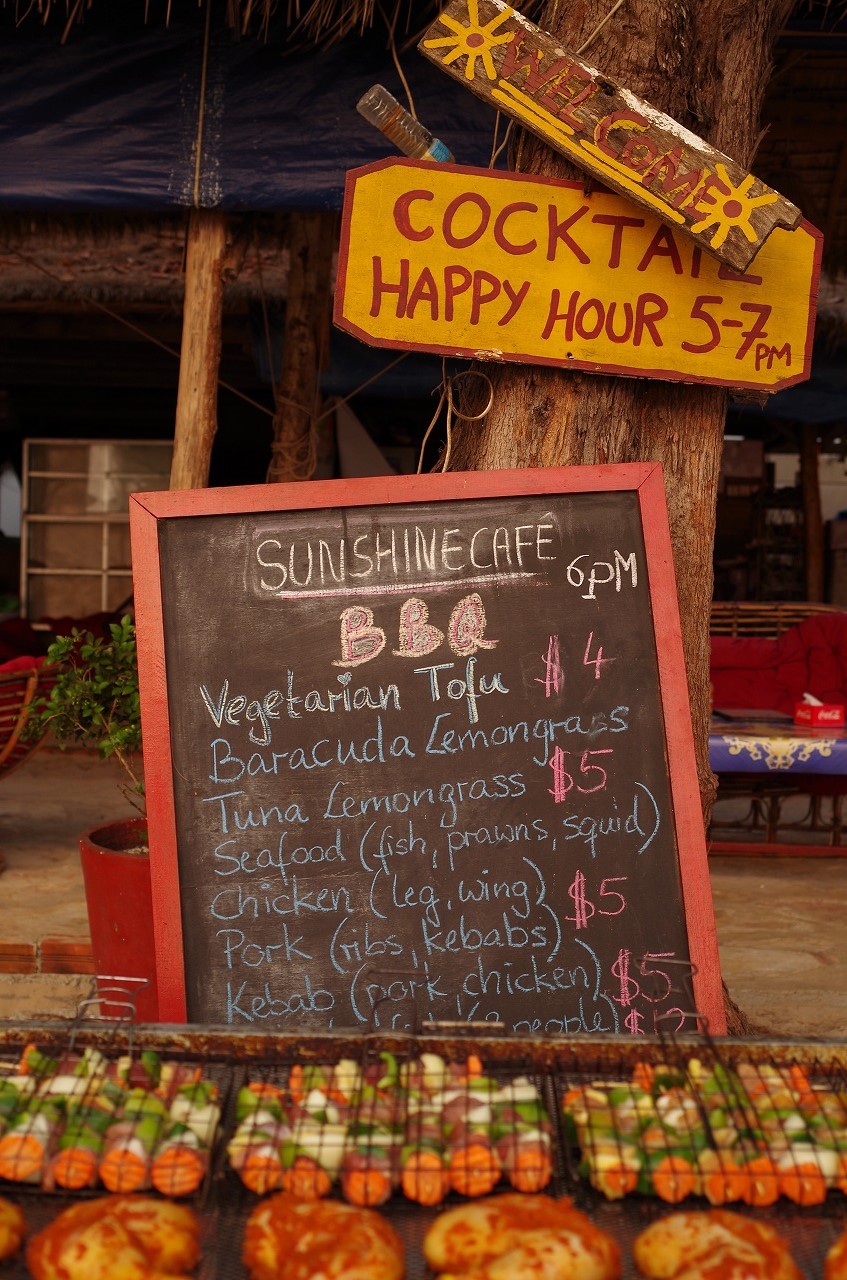 WELCOME
COCKTAIL
HAPPY HOUR 5-7PM
SUNSHINE CAFÉ
6pM
BBQ
Vegetarian Tofu $4
Baracuda Lemongrass
Tuna Lemongrass $5
Seafood (fish, prawns, squid)
Chicken (leg, wing) $5
Pork (ribs, kebabs)
Kebab (pork, chicken) $5
people)
Coca-Cola